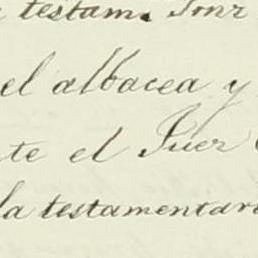 testam. Jonr
el albacea y
te el Juez
la testamentari